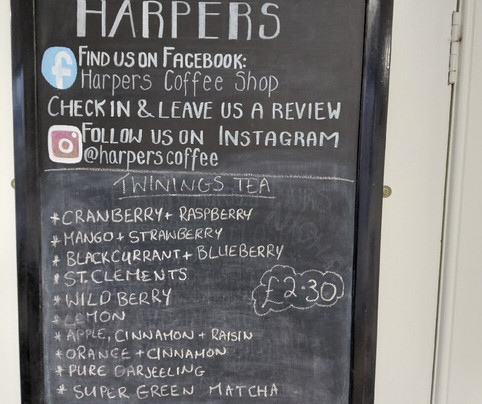 HARPERS
FIND US ON FACEBOOK:
Harpers Coffee Shop
CHECK IN & LEAVE US A REVIEW
FOLLOW US ON INSTAGRAM
@harperscoffee
TWININGS TEA
* CRANBERRY + RASPBERRY
* MANGO + STRAWBERRY
* BLACKCURRANT + BLUEBERRY
* ST. CLEMENTS
* WILD BERRY
£2.30
* LEMON
* APPLE, CINNAMON + RAISIN
* ORANGE + CINNAMON
* PURE DARJEELING
* SUPER GREEN MATCHA